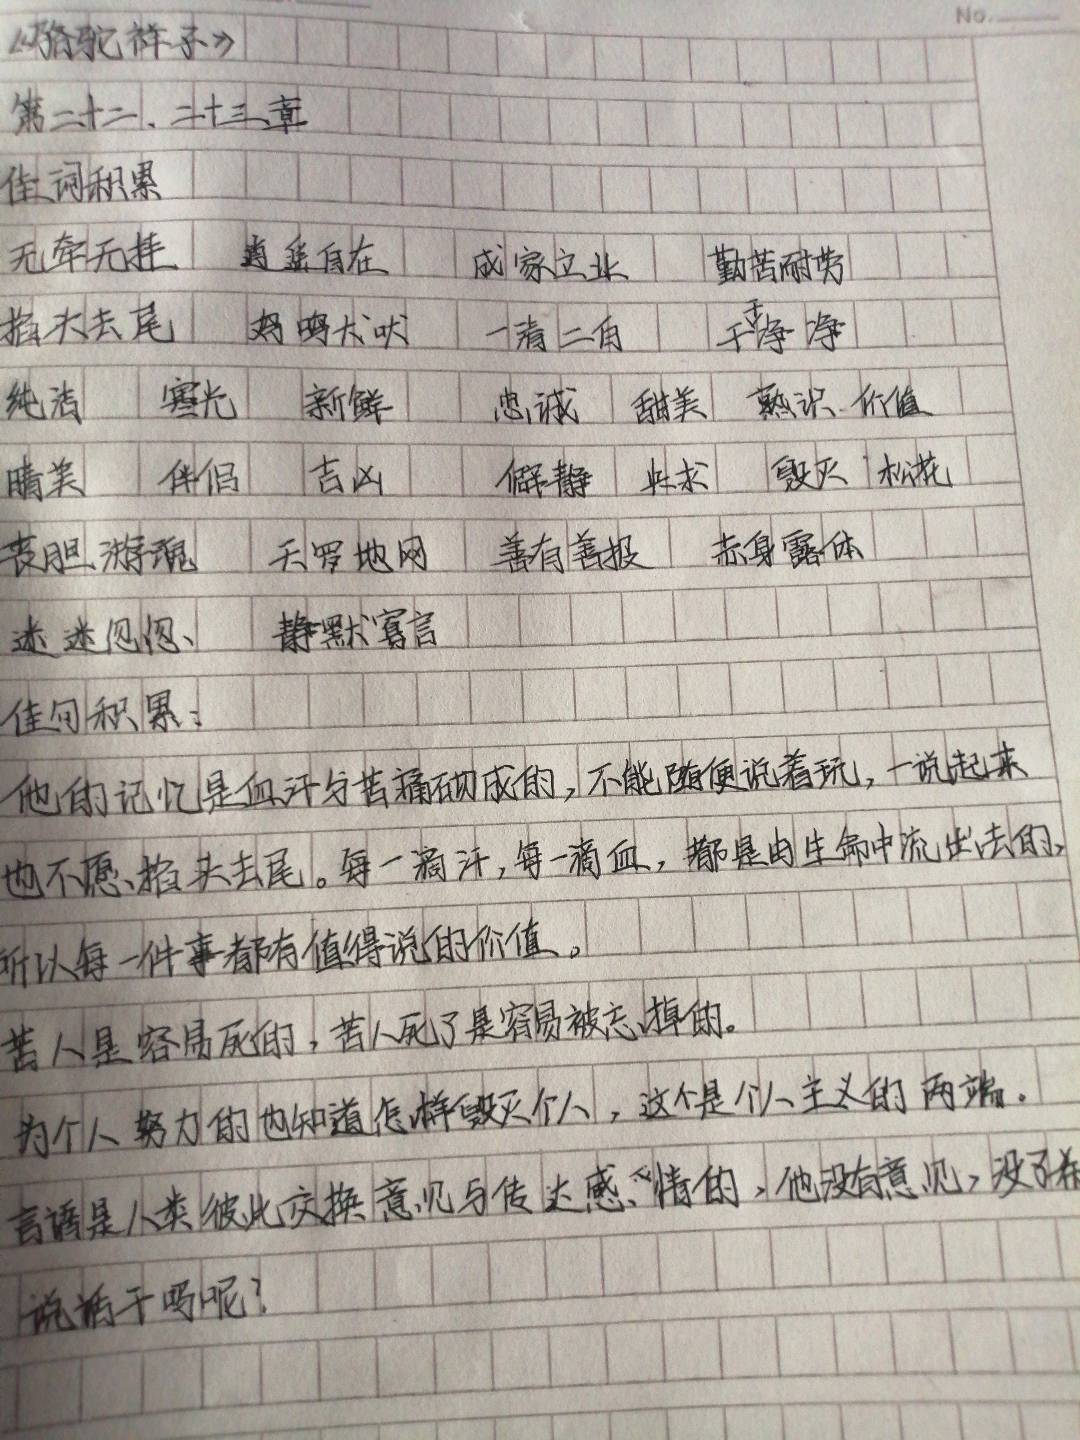 No.
《骆驼祥子》
第二十二、二十三章
佳词积累
无牵无挂 逍遥自在 成家立业 勤苦耐劳
掐头去尾 鸡鸣犬吠 一清二白 干干净净
纯洁 寒光 新鲜 忠诚 甜美 熟识 价值
晴美 伴侣 吉凶 僻静 央求 毁灭 松花
丧胆游魂 天罗地网 善有善报 赤身露体
迷迷忽忽 静默寡言
佳句积累:
他的记忆是血汗与苦痛砌成的,不能随便说着玩,一说起来
也不愿掐头去尾。每一滴汗,每一滴血,都是由生命中流出去的,
所以每一件事都有值得说的价值。
苦人是容易死的,苦人死了是容易被忘掉的。
为个人努力的也知道怎样毁灭个人,这个是个人主义的两端.
言语是人类彼此交换意见与传达感情的,他没有意见,没了希
说话干吗呢?